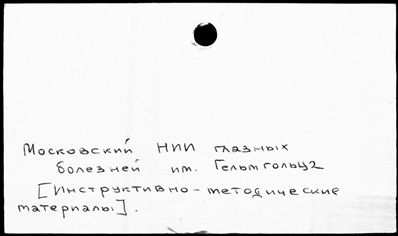 Московский НИИ глазных
болезней им. Гельмгольца
[Инструктивно-методические
материалы].